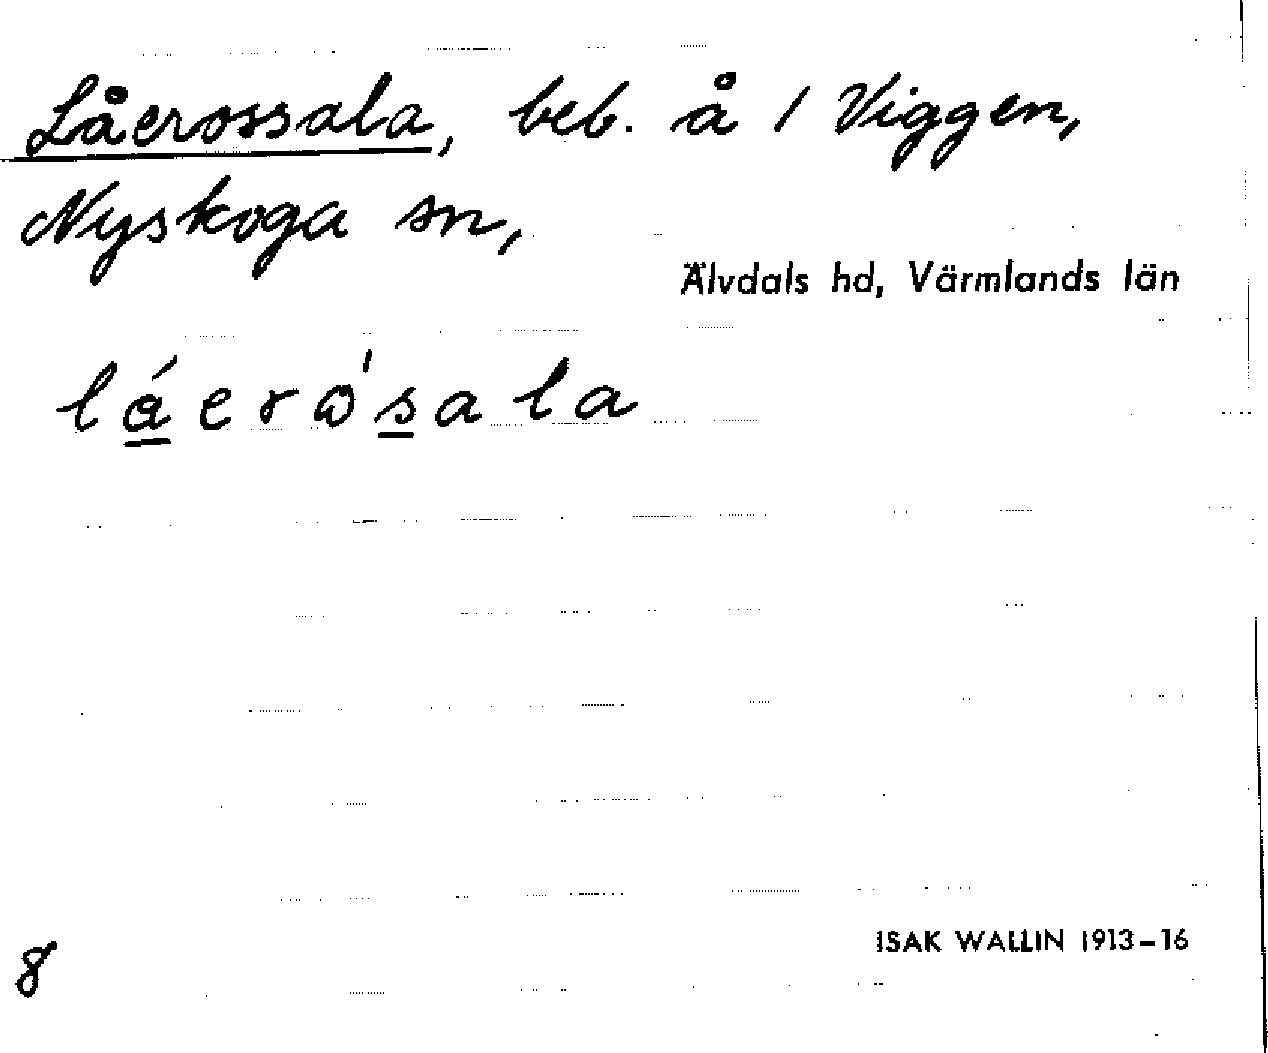 Låerossala, beb. å 1 Viggen,
Nyskoga sn,
Älvdals hd, Värmlands län
láerω̍sala
8
ISAK WALLIN 1913-16